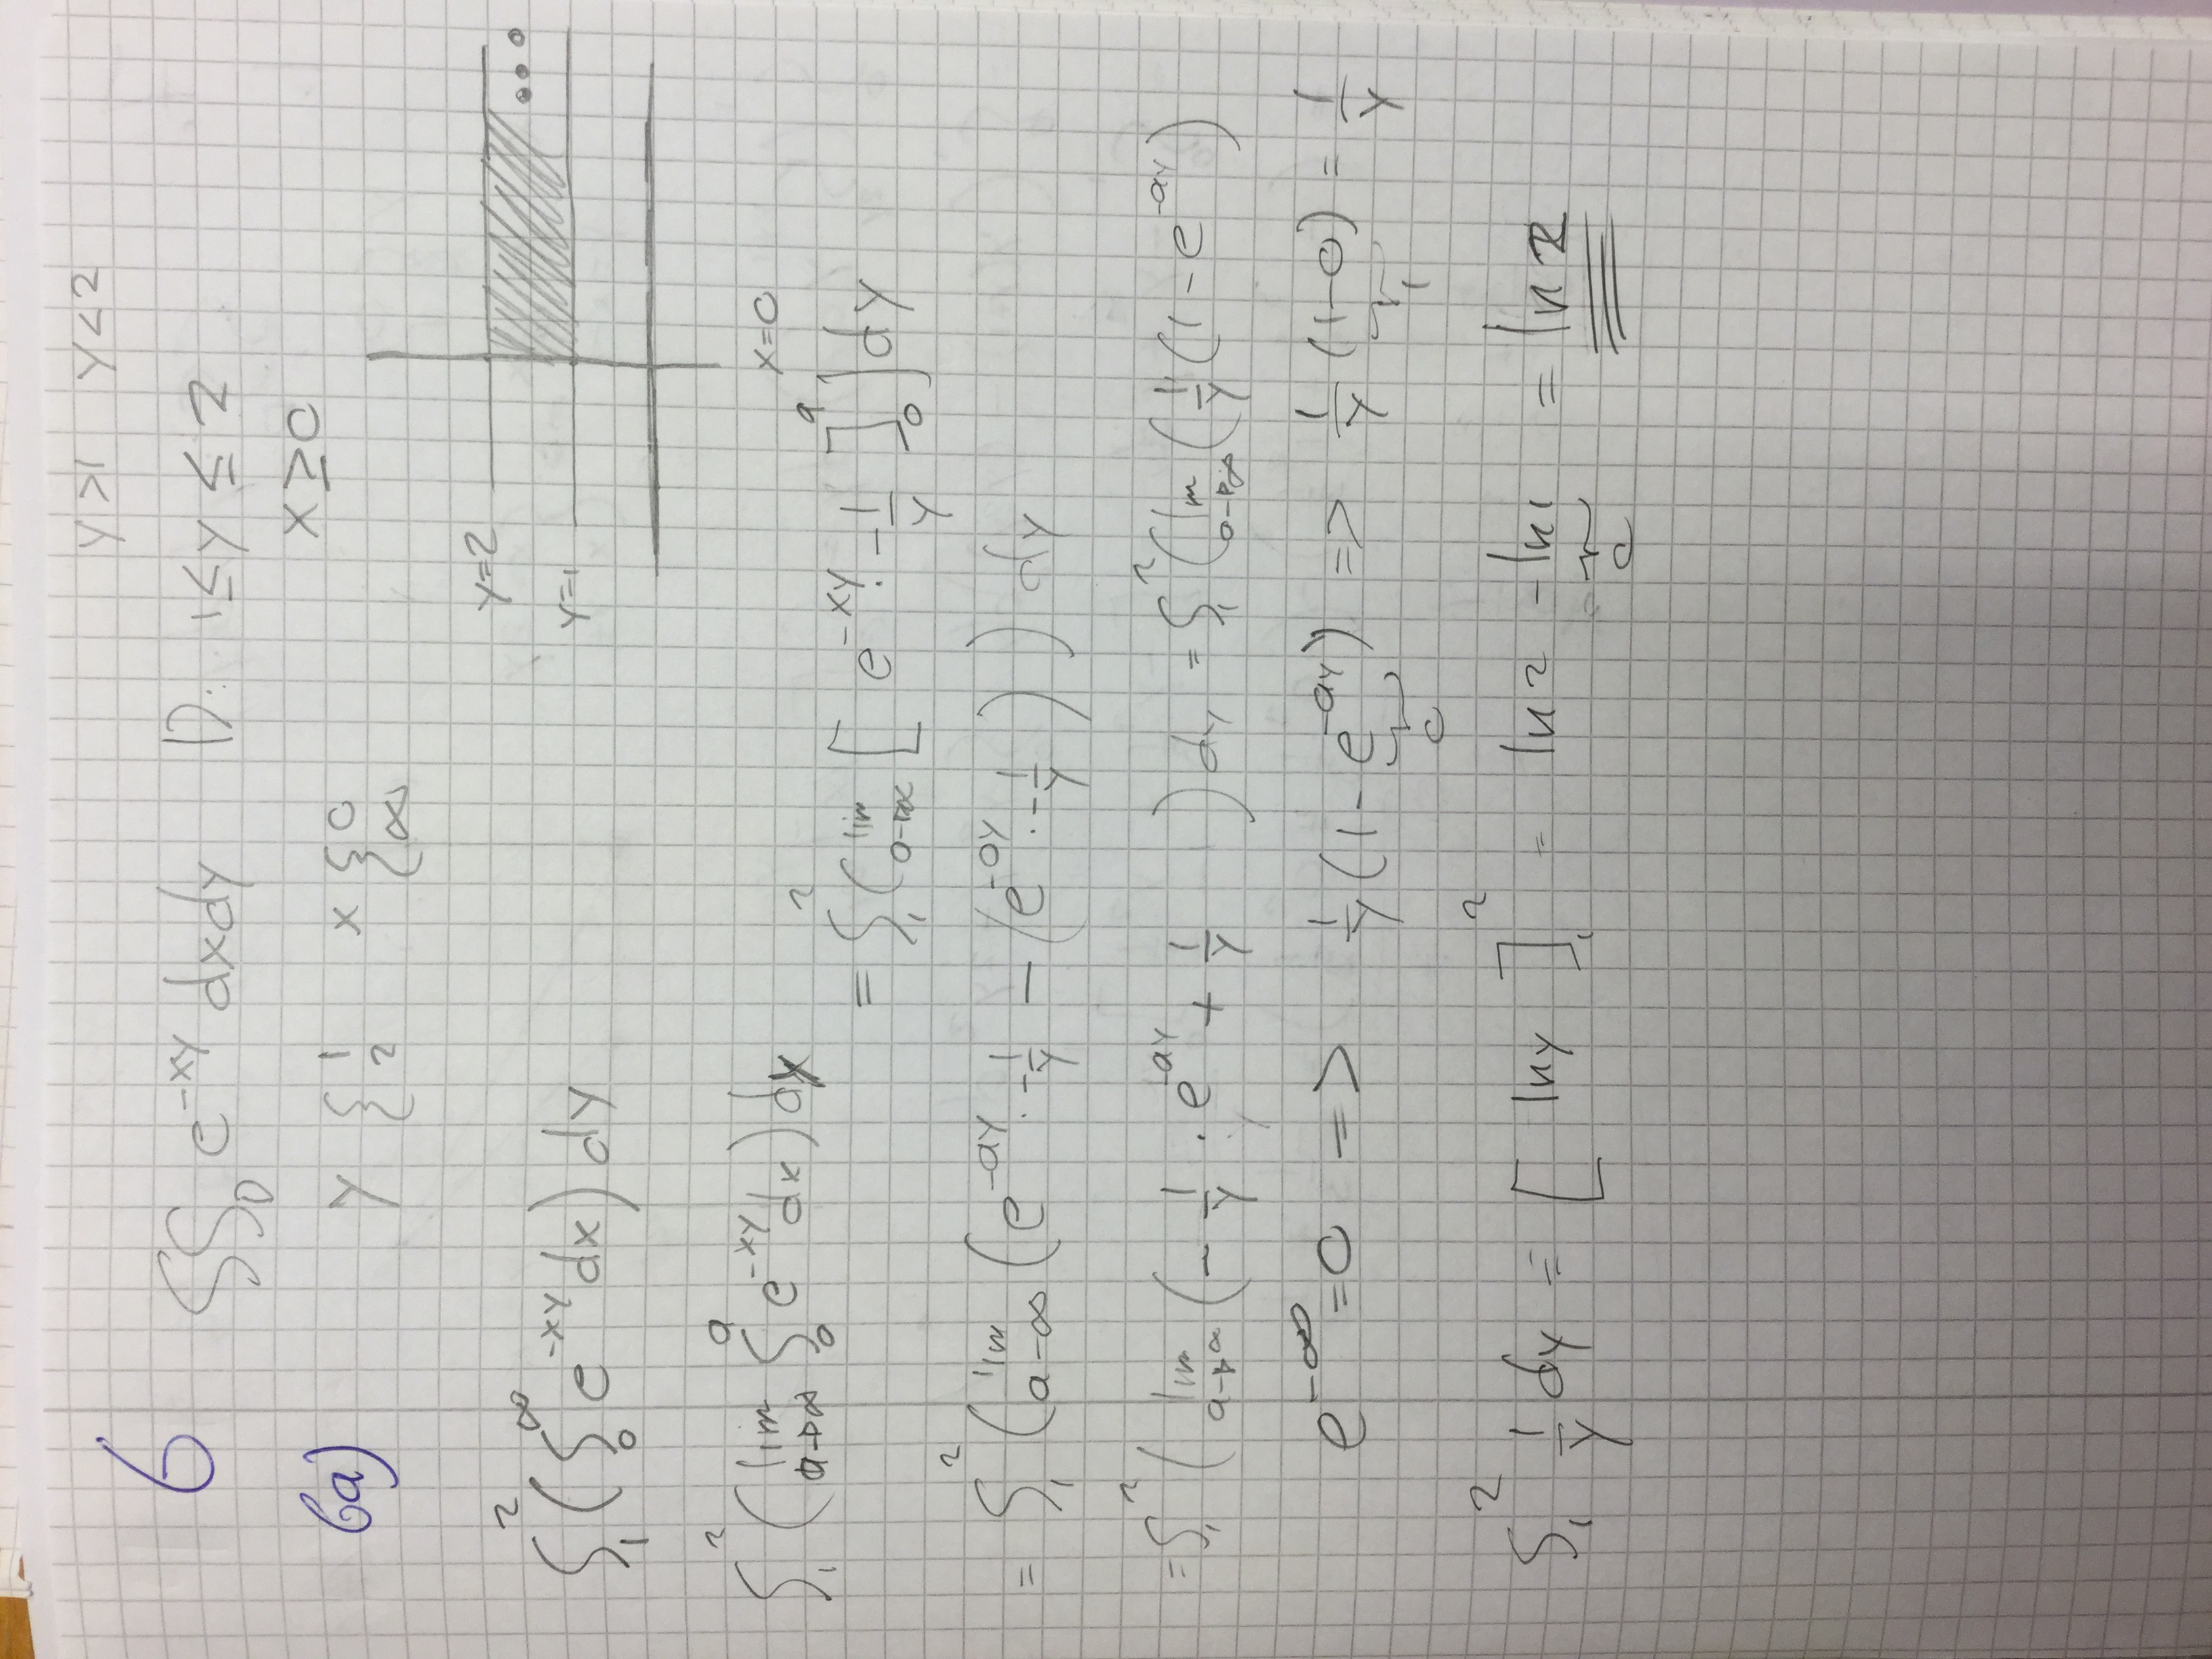 y>1 y<2
6 ∫∫_D e^{-xy} dxdy D: 1≤y≤2
x≥0
6a) y { 1 2 x { 0 ∞
y=2
y=1
∫_1^2 ( ∫_0^∞ e^{-xy} dx ) dy
x=0
∫_1^2 ( lim_{a→∞} ∫_0^a e^{-xy} dx ) dy
= ∫_1^2 ( lim_{a→∞} [ e^{-xy} · -1/y ]_0^a ] dy
= ∫_1^2 ( lim_{a-∞} ( e^{-ay} · -1/y - ( e^{-0y} · -1/y ) ) ) dy
= ∫_1^2 ( lim_{a→∞} ( - 1/y · e^{-ay} + 1/y ) dy = ∫_1^2 ( lim_{a→∞} ( 1/y ( 1 - e^{-ay} )
e^{-∞} = 0 => 1/y ( 1 - e^{-ay} ) 0 => 1/y ( 1-0 ) 1 = 1/y
∫_1^2 1/y dy = [ ln y ]_1^2 = ln 2 - ln 1 0 = ln 2